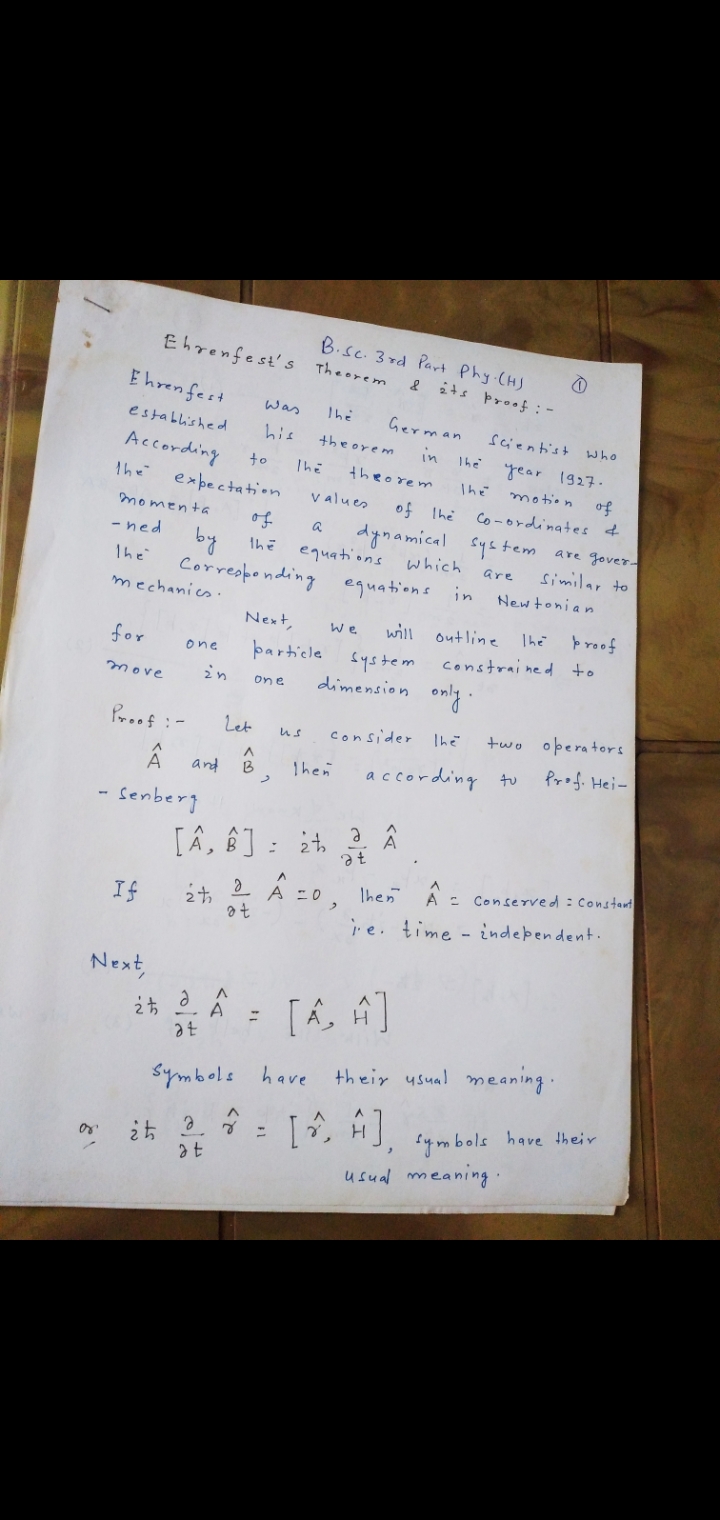 B.Sc. 3rd Part Phy.(H) ①
Ehrenfest's Theorem & its proof :-
Ehrenfest was the German Scientist who
established his theorem in the year 1927.
According to the theorem the motion of
the expectation values of the Co-ordinates &
momenta of a dynamical system are gover-
-ned by the equations which are similar to
the Corresponding equations in Newtonian
mechanics.
Next, we will outline the proof
for one particle system constrained to
move in one dimension only.
Proof :- Let us consider the two operators
Â and B̂, then according to Prof. Hei-
-senberg
[Â, B̂] = iħ ∂/∂t Â.
If iħ ∂/∂t Â = 0, then Â = conserved = constant
i.e. time-independent.
Next,
iħ ∂/∂t Â = [Â, Ĥ]
Symbols have their usual meaning.
or, iħ ∂/∂t r̂ = [r̂, Ĥ], symbols have their
usual meaning.